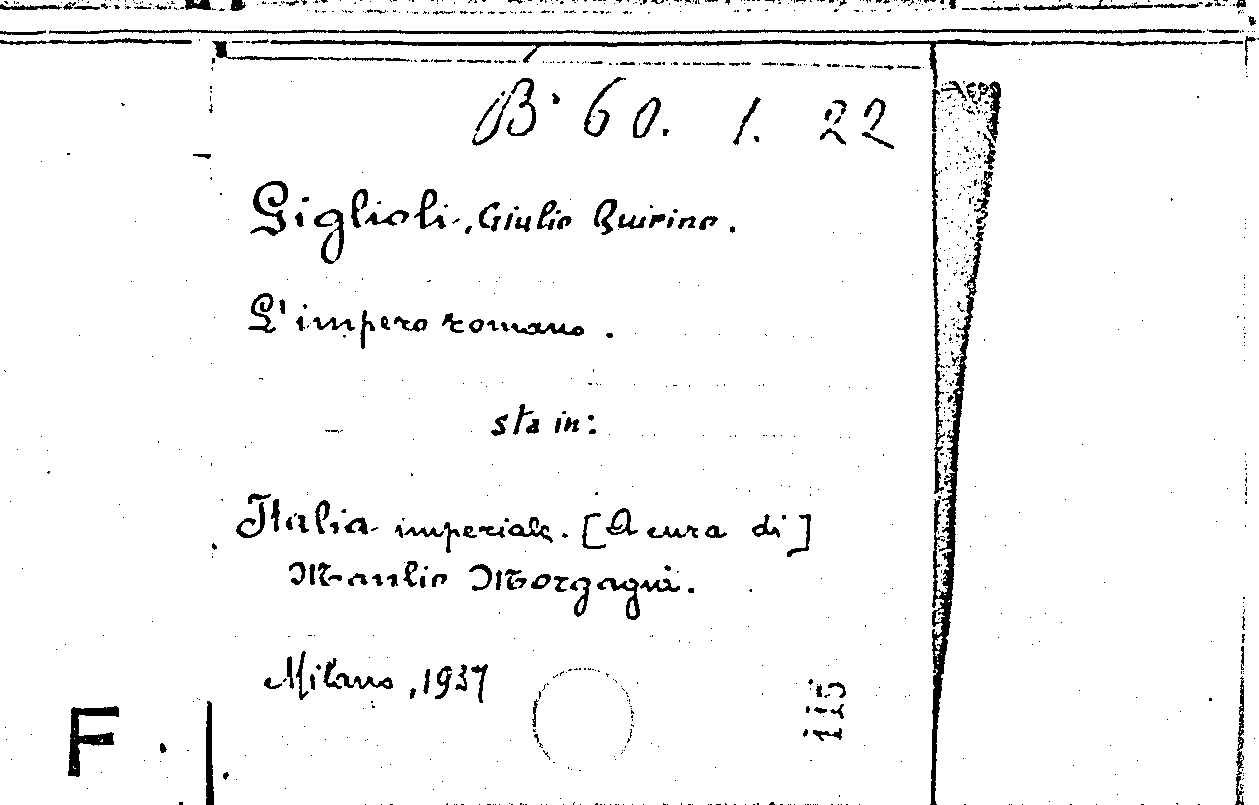 B. 60. 1. 22
Giglioli, Giulio Quirino.
L'impero romano.
sta in:
Italia imperiale. [A cura di]
Manlio Morgagni.
Milano, 1937
F